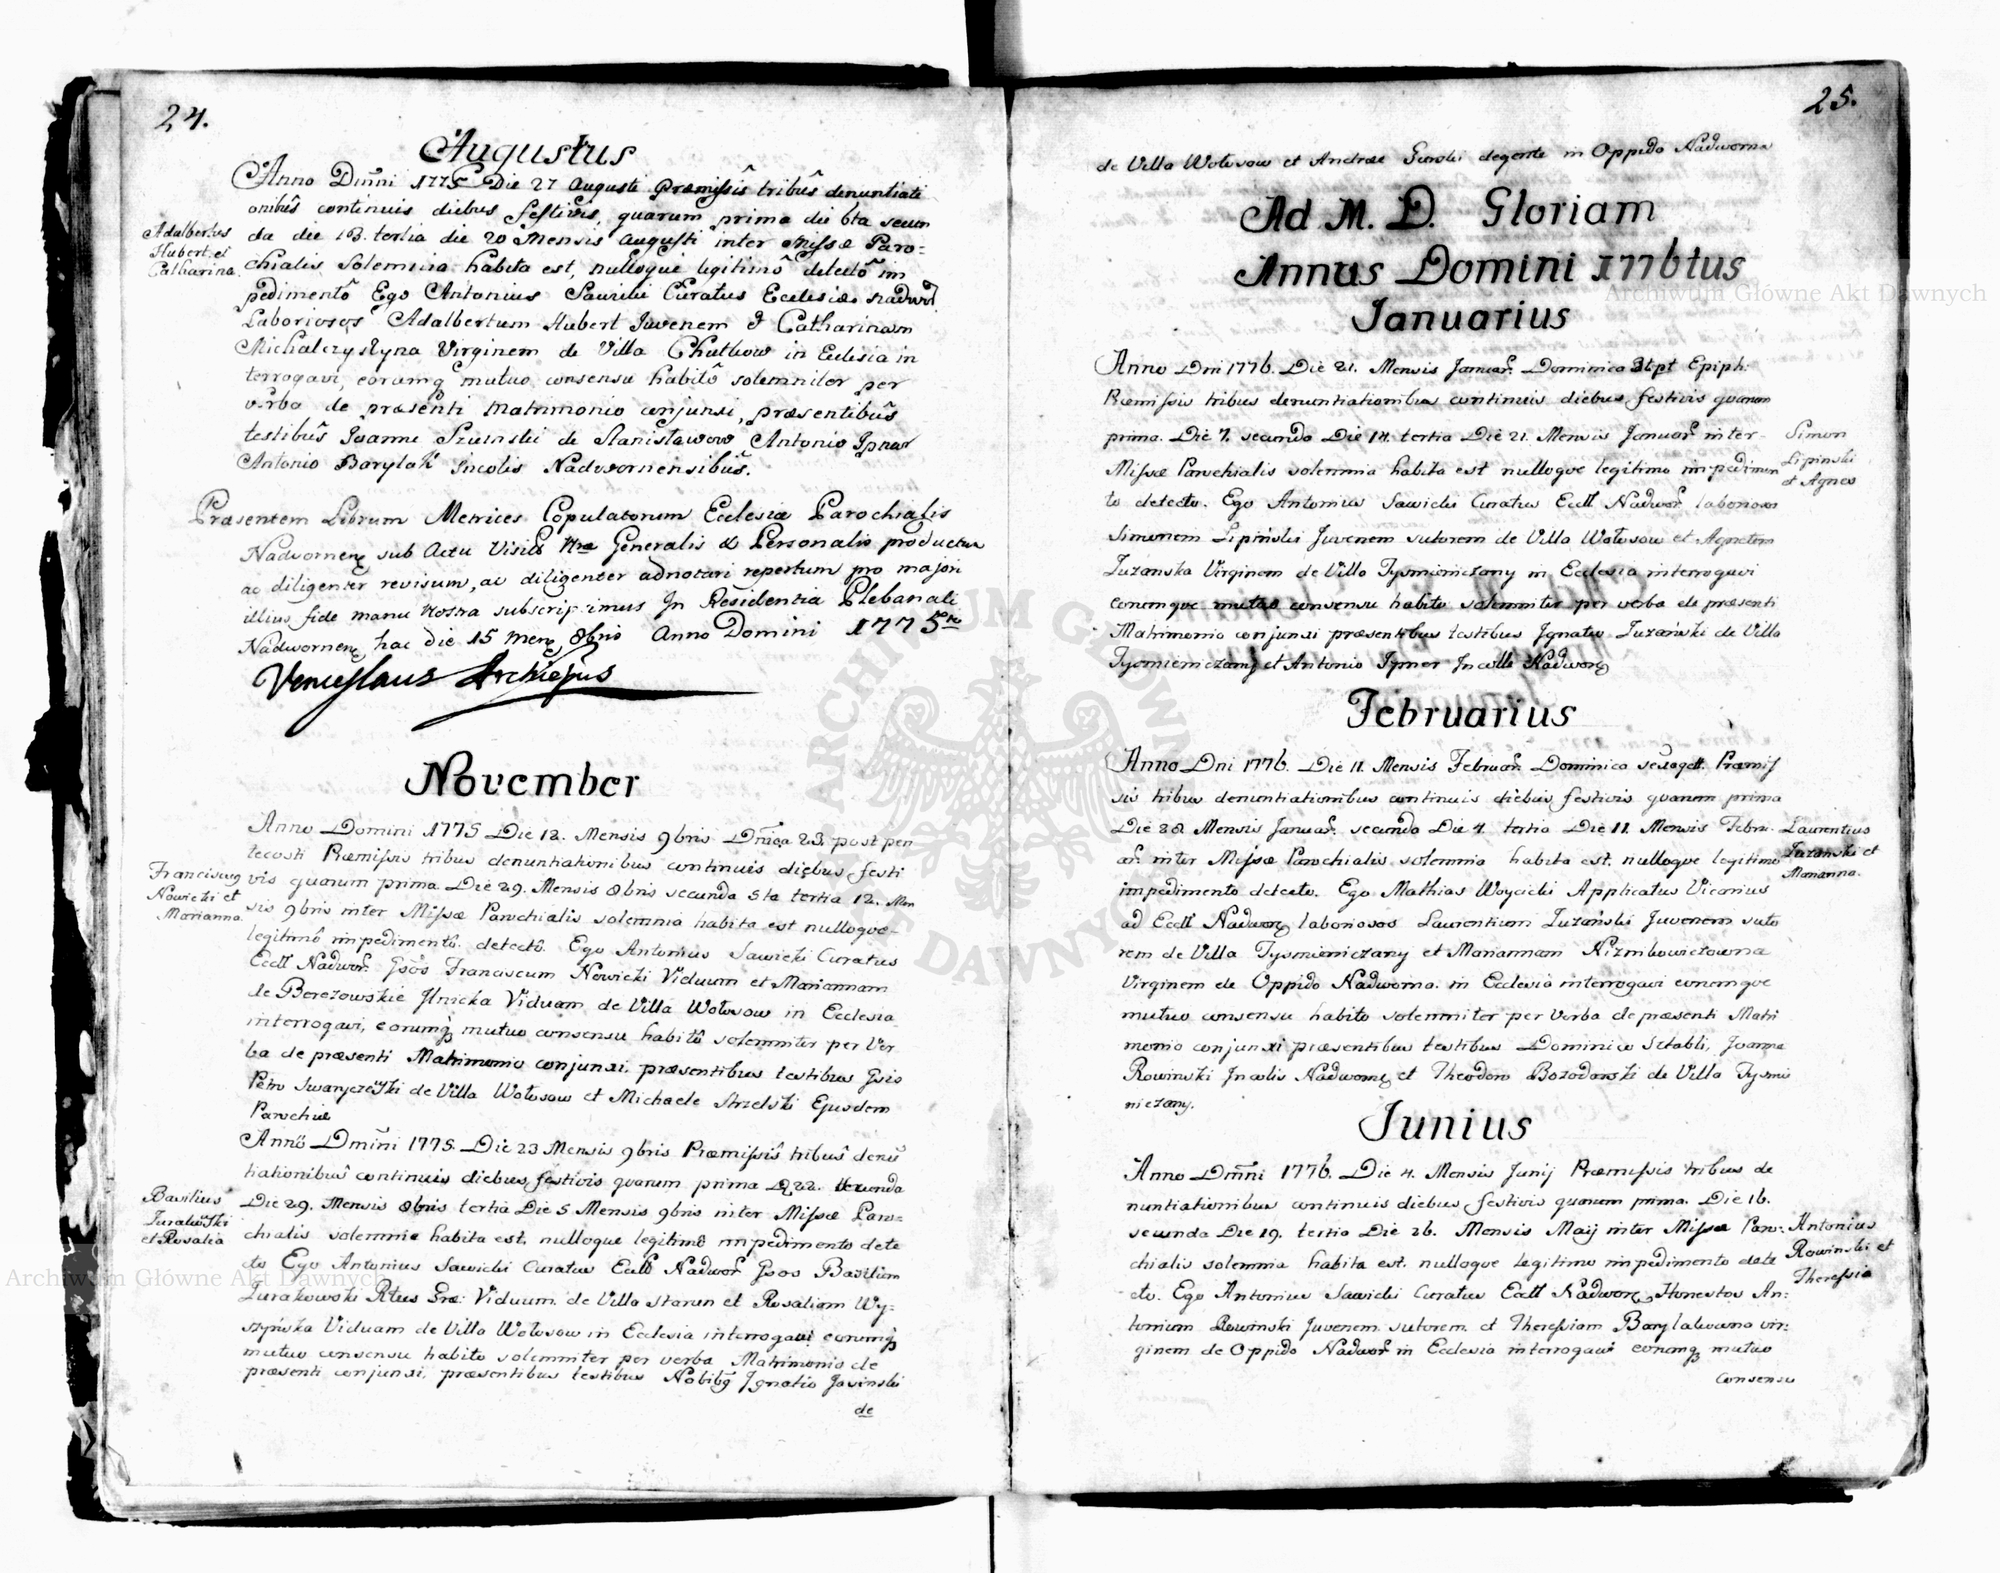 24.
Augustus
Anno Dm̃ni 1775 Die 27 Augusti Præmissis tribus denuntiati
onibus continuis diebus festivis, quarum prima die 6ta secun
da die 13. tertia die 20 Mensis Augusti inter Missæ Paro-
chialis solemnia habita est, nulloque legitimô detectô im
pedimentô Ego Antonius Sawicki Curatus Ecclesiæ Nadwor.
Laboriosos Adalbertum Hubert Juvenem & Catharinam
Michalczyszyna Virginem de Villa in Eclesia in
terrogavi, eorumq mutuo consensu habitô solemniter per
verba de præsenti Matrimonio conjunxi, præsentibus
testibus Joanne Szuinski de Stanisławow Antonio
Antonio Barylak Incolis Nadwornensibus.
Adalbertus
Hubert et
Catharina.
Præsentem Librum Metrices Copulatorum Ecclesiæ Parochialis
Nadwornen sub Actu Visitis Nræ Generalis & Personalis productum
ac diligenter revisum, ac diligenter adnotari repertum pro majori
illius fide manu Nostra subscripsimus In Residentia Plebanali
Nadwornen hac die 15 Men 8bris Anno Domini 1775to
Venceslaus Archiepus
November
Anno Domini 1775 Die 12. Mensis 9bris Dnĩca 23. post pen
tecosti Præmissis tribus denuntiationibus continuis diebus festi
vis quarum prima Die 29. Mensis 8bris secunda 5ta tertia 12. Men
sis 9bris inter Missæ Parochialis solemnia habita est nulloque-
legitimô impedimentô detectô. Ego Antonius Sawicki Curatus
Eccll Nadwor. Gsos Franciscum Nowicki Viduum et Mariannam
de Berezowskie Ilnicka Viduam de Villa Wołosow in Ecclesia
interrogavi, eorumq mutuo consensu habitô solemniter per Ver
ba de præsenti Matrimonio conjunxi præsentibus testibus Gsis
Petro de Villa Wołosow et Michaele Strzelski Ejusdem
Parochiæ
Franciscus
Nowicki et
Marianna.
Anno Dmĩni 1775. Die 23 Mensis 9bris Præmissis tribus denũ
tiationibus continuis diebus festivis quarum prima D 22. secunda
Die 29. Mensis 8bris tertia Die 5 Mensis 9bris inter Missæ Paro-
chialis solemnia habita est. nulloque legitimô impedimento dete
cto Ego Antonius Sawicki Curatus Eccll Nadwor Gsos Basilium
Zurakowski Rtus Græ: Viduum. de Villa Starun et Rosaliam Wy-
szyńska Viduam de Villa Wołosow in Ecclesia interrogavi eorumq
mutuo consensu habito solemniter per verba Matrimonio de
præsenti conjunxi, præsentibus testibus Nobibq Ignatio Jasinski
de
Basilius
Zurakowski
et Rosalia
25.
de Villa Wołosow et Andræ Gurski degente in Oppido Nadworna
Ad M. D. Gloriam
Annus Domini 1776tus
Januarius
Anno Dni 1776. Die 21. Mensis Januar. Dominica 3tpt Epiph.
Præmissis tribus denuntiationibus continuis diebus festivis quarum
prima. Die 7. secunda Die 14. tertia Die 21. Mensis Januar. inter-
Missæ Parochialis solemnia habita est nulloque legitimo impedimen
to detecto. Ego Antonius Sawicki Curatus Eccll Nadwor. laboriosos
Simonem Lipiński Juvenem sutorem de Villa Wołosow et Agnetem
Zuzanska Virginem de Villa Tysmieniczany in Ecclesia interrogavi
eorumque mutuo consensu habito solemniter per verba de præsenti
Matrimonio conjunxi præsentibus testibus Ignatio Zuzański de Villa
Tysmieniczany et Antonio Tymer Incolis Nadworn
Simon
Lipinski
et Agnes
Februarius
Anno Dni 1776. Die 11. Mensis Februar. Dominica sexagell. Præmis
sis tribus denuntiationibus continuis diebus festivis quarum prima
Die 28. Mensis Januar. secunda Die 4. tertia Die 11. Mensis Febru-
ar. inter Missæ Parochialis solemnia habita est. nulloque legitimo
impedimento detecto. Ego Mathias Woycicki Applicatus Vicarius
ad Eccll Nadworn laboriosos Laurentium Zuzański Juvenem suto
rem de Villa Tysmieniczany et Mariannam Nizmkowiczowna
Virginem de Oppido Nadworna. in Ecclesia interrogavi eorumque
mutuo consensu habito solemniter per verba de præsenti Matri
monio conjunxi præsentibus testibus Dominico Sztabli, Joanne
Rowinski Incolis Nadworn et Theodoro Bozodorski de Villa Tysmie
niczany.
Laurentius
Zuzanski et
Marianna.
Junius
Anno Dmĩni 1776. Die 4. Mensis Junij Præmissis tribus de
nuntiationibus continuis diebus festivis quarum prima. Die 16.
secunda Die 19. tertia Die 26. Mensis Maij inter Missæ Paro-
chialis solemnia habita est. nulloque legitimo impedimento dete
cto. Ego Antonius Sawicki Curatus Eccll Nadworn Honestos An-
tonium Rowinski Juvenem sutorem. et Theressiam Barylakowna vir-
ginem de Oppido Nadwor in Ecclesia interrogavi eorumq mutuo
consensu
Antonius
Rowinski et
Theressia
Archiwum Główne Akt Dawnych
Archiwum Główne Akt Dawnych
ARCHIWUM GŁÓWNE AKT DAWNYCH